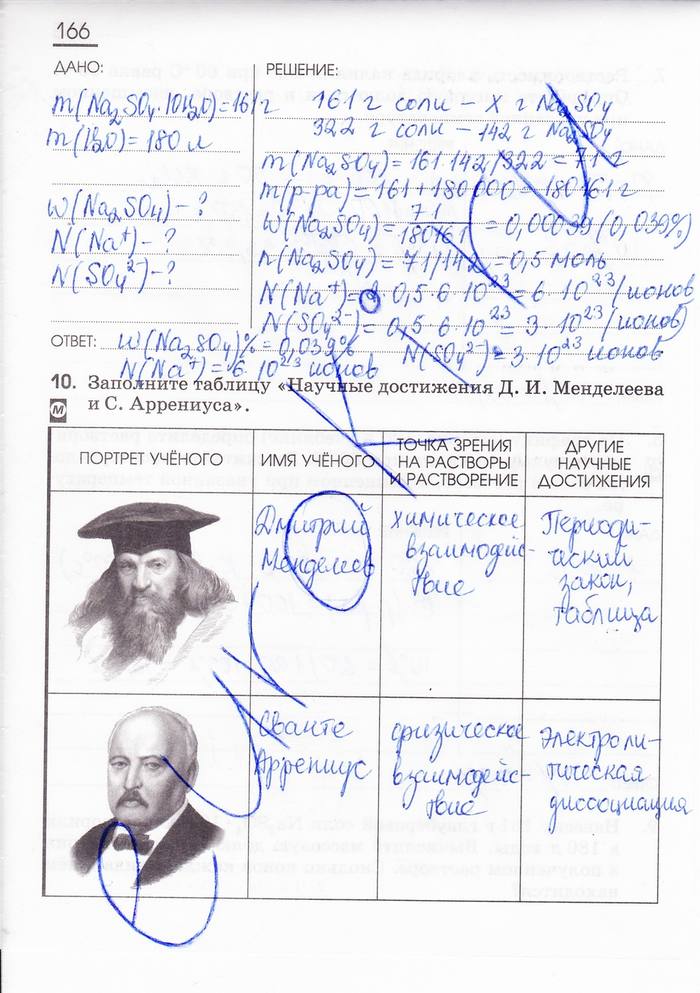 166
ДАНО:
РЕШЕНИЕ:
m(Na₂SO₄·10H₂O)=161 г
m(H₂O)=180 л
w(Na₂SO₄)-?
N(Na⁺)-?
N(SO₄²⁻)-?
161 г соли - x г Na₂SO₄
322 г соли - 142 г Na₂SO₄
m(Na₂SO₄)=161·142/322=71 г
m(р-ра)=161+180 000=180161 г
w(Na₂SO₄)=71/180161=0,00039(0,039%)
n(Na₂SO₄)=71/142=0,5 моль
N(Na⁺)=2·0,5·6·10²³=6·10²³(ионов
N(SO₄²⁻)=0,5·6·10²³=3·10²³(ионов)
ОТВЕТ: w(Na₂SO₄)%=0,039%
N(Na⁺)=6·10²³ ионов N(SO₄²⁻)=3·10²³ ионов
10. Заполните таблицу «Научные достижения Д. И. Менделеева
М и С. Аррениуса».
ПОРТРЕТ УЧЁНОГО
ИМЯ УЧЁНОГО
ТОЧКА ЗРЕНИЯ
НА РАСТВОРЫ
И РАСТВОРЕНИЕ
ДРУГИЕ
НАУЧНЫЕ
ДОСТИЖЕНИЯ
Дмитрий
Менделеев
химическое
взаимодейс-
твие
Периоди-
ческий
закон,
таблица
Сванте
Аррениус
физическое
взаимодейс-
твие
электроли-
тическая
диссоциация